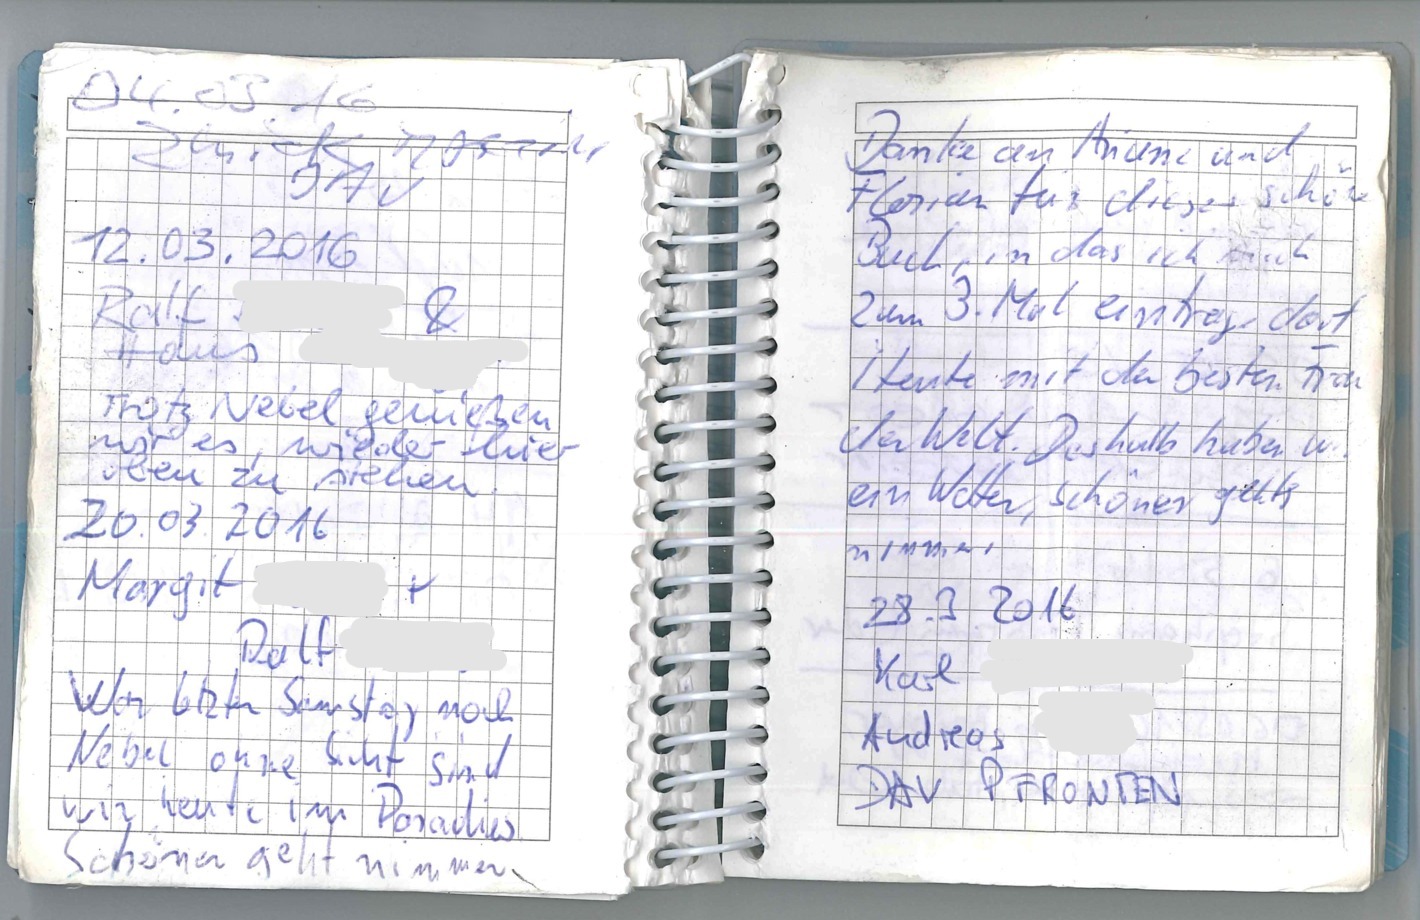 04.03.16
DAV
12.03.2016
Ralf &
Hans
Trotz Nebel genießen
wir es, wieder hier
oben zu stehen.
20.03.2016
Margit +
Ralf
War letzten Samstag noch
Nebel ohne Sicht sind
wir heute im Paradies
Schöner geht nimmer.
Danke an und
Florian für dieses schöne
Buch, in das ich mich
zum 3. Mal eintrage darf
Heute mit der besten Frau
der Welt. Deshalb haben wir
ein Wetter, schöner gehts
nimmer.
28.3.2016
Karl
Andreas
DAV PFRONTEN